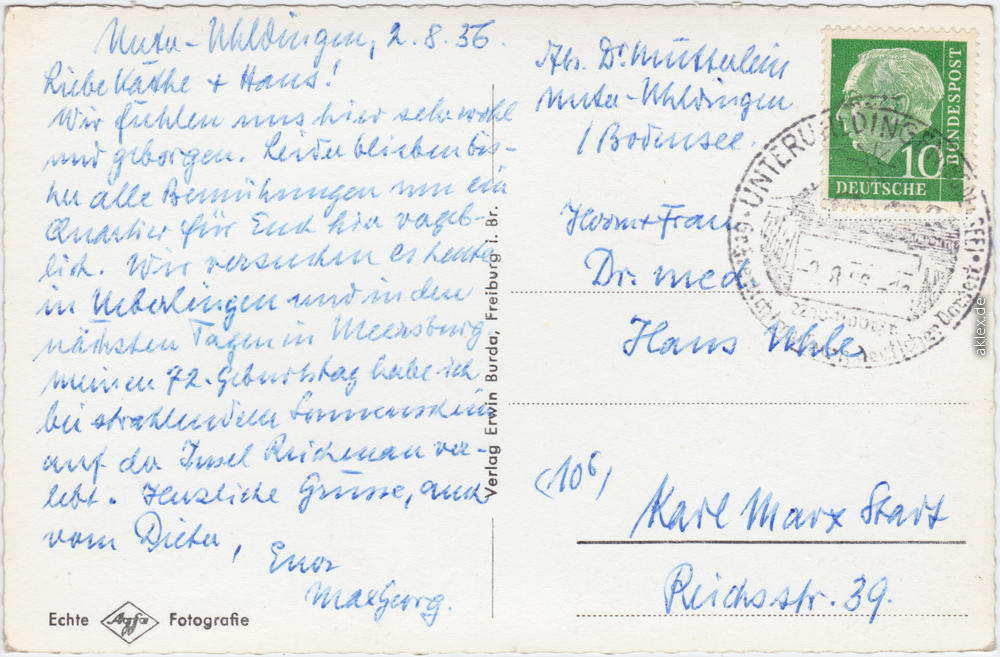 Unter-Uhldingen, 2.8.56.
Liebe Käthe + Hans!
Wir fühlen uns hier sehr wohl
und geborgen. Leider blieben bis-
her alle Bemühungen um ein
Quartier für Euch hier vageb-
lich. Wir versuchen es heute
in Ueberlingen und in den
nächsten Tagen in Meersburg.
Meinen 72. Geburtstag habe ich
bei strahlendem Sonnenschein
auf der Insel Reichenau ver-
lebt. Herzliche Grüsse, auch
vom Dieter,
Euer
Max Georg.
Echte Agfa Fotografie
Verlag Erwin Burda, Freiburg i. Br.
Abs. Dr. Mütterlein
Unter-Uhldingen
/Bodensee.
Herrn + Frau
Dr. med
Hans Uhle
(10b)
Karl Marx Stadt
Reichsstr. 39.
10
BUNDESPOST
DEUTSCHE
UNTERUHLDINGEN
2.8.56
aklex.de